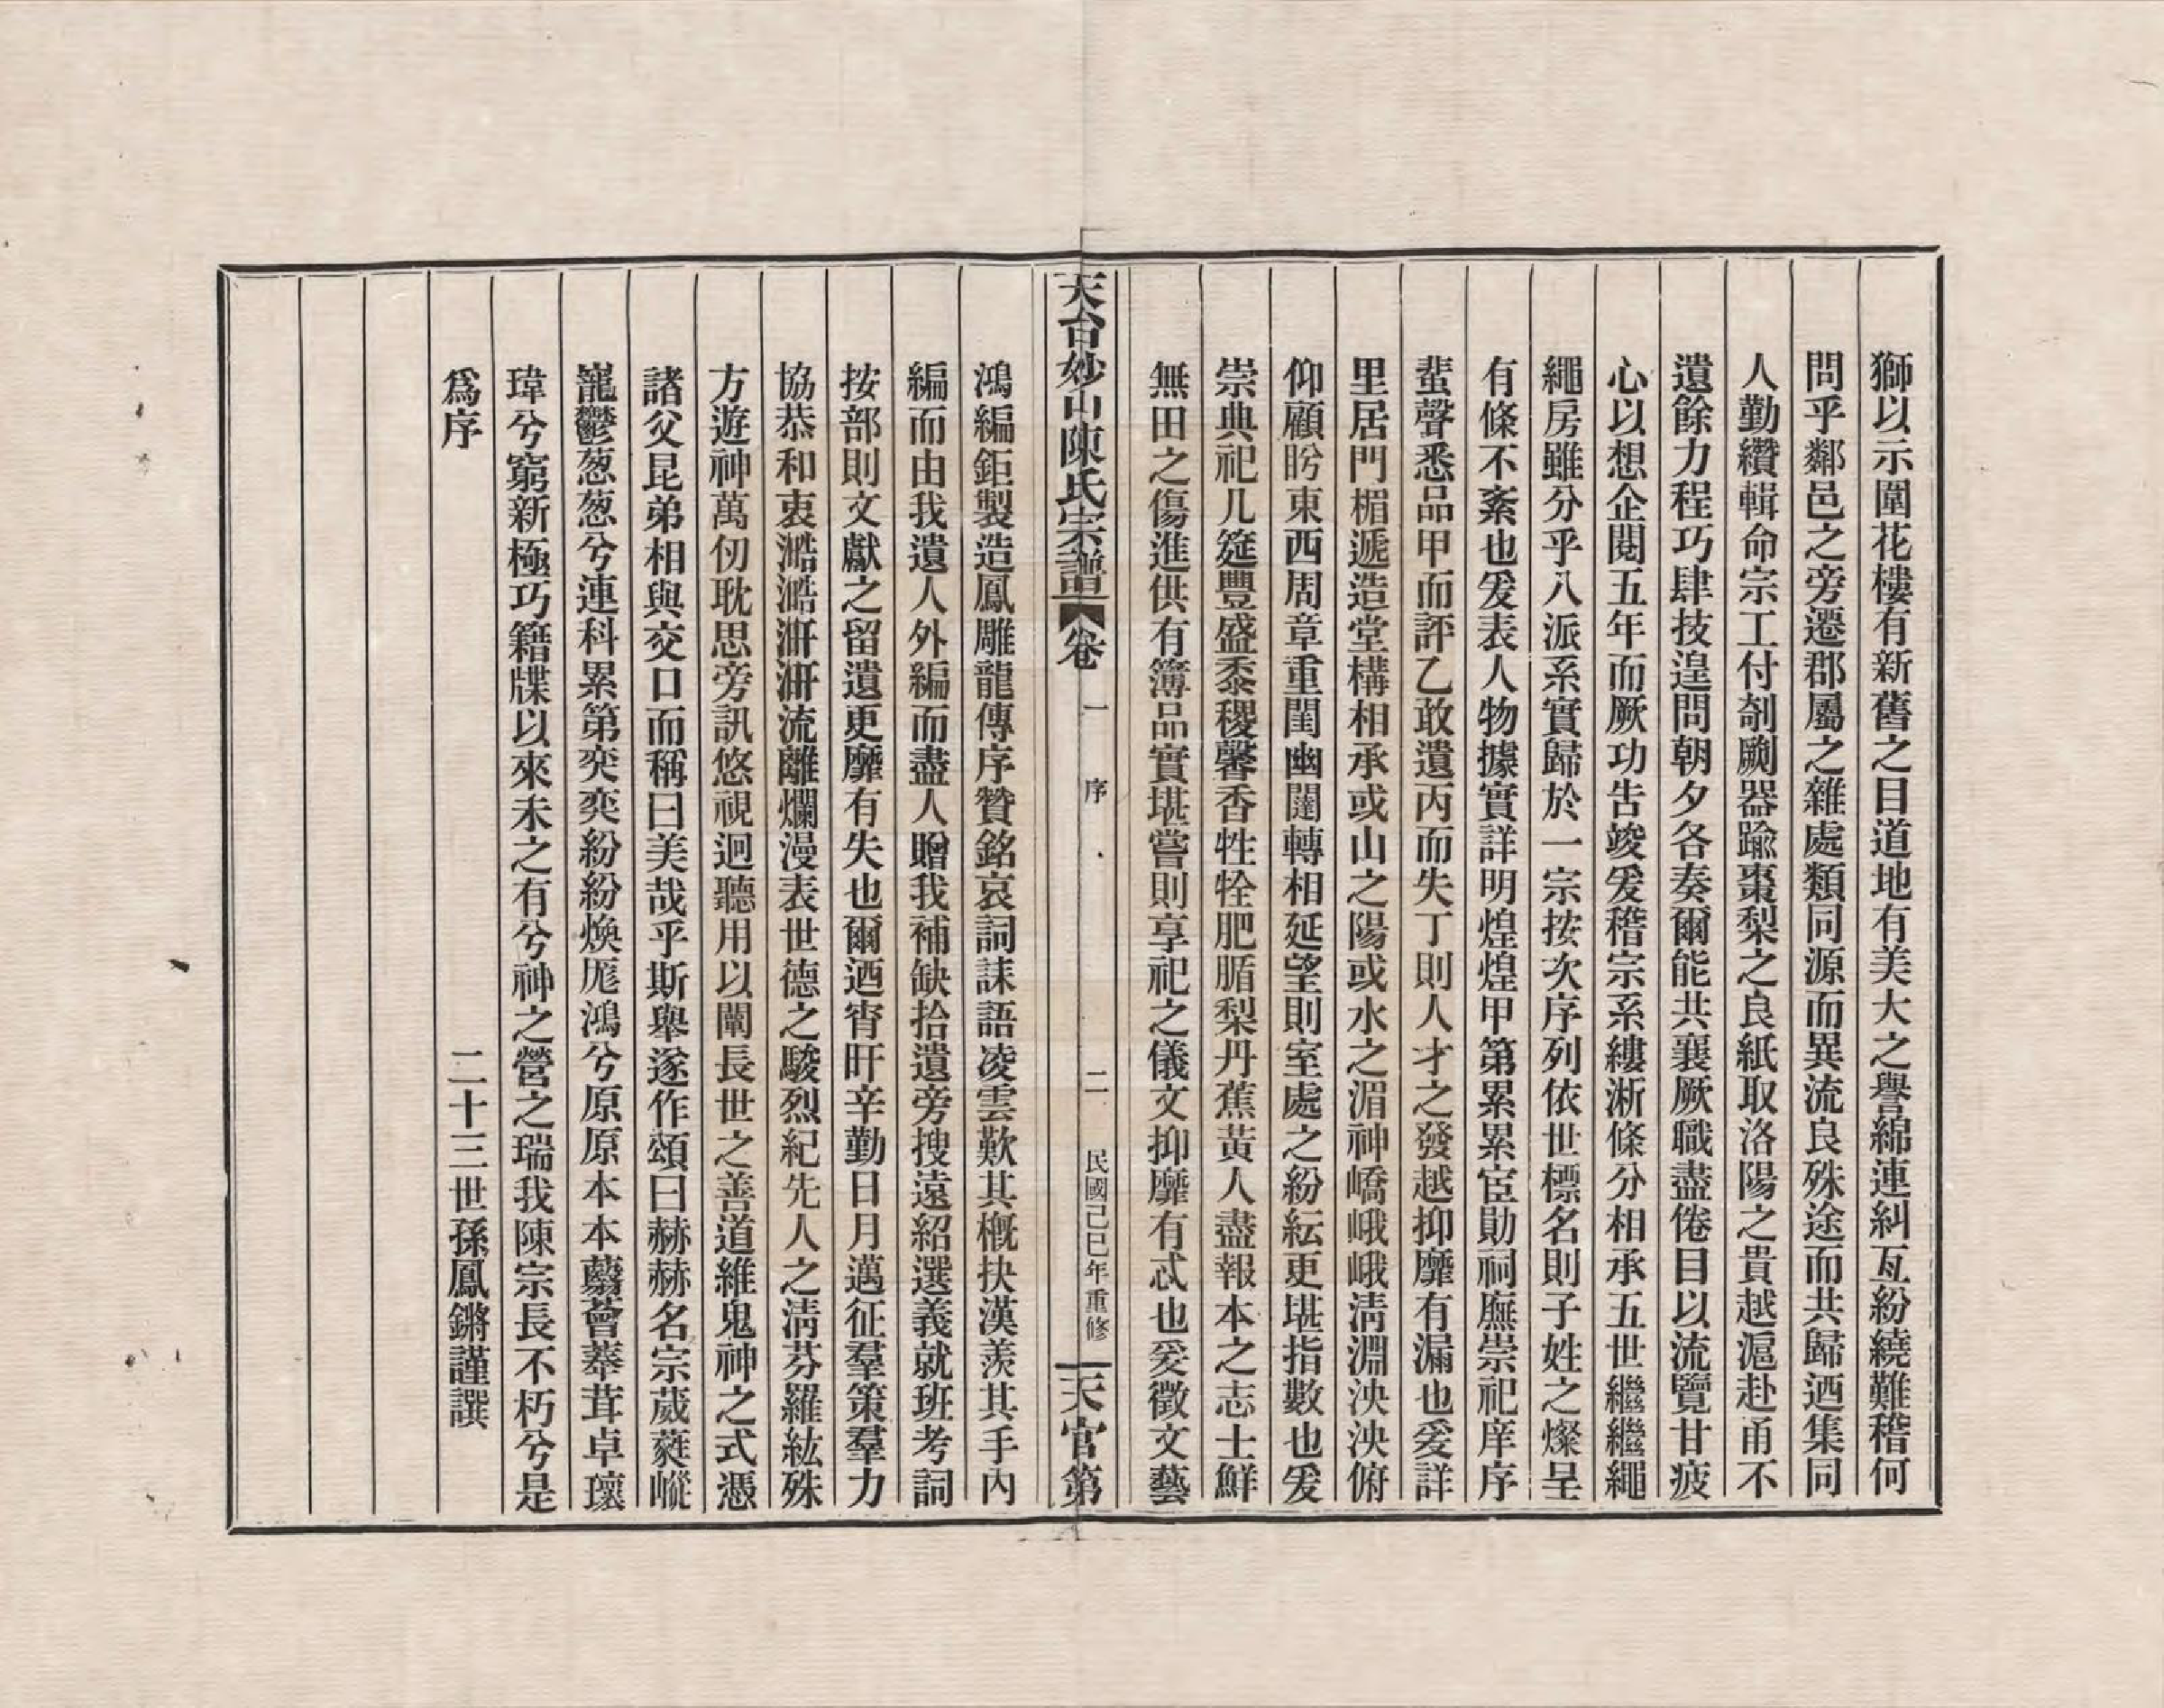 獅以示圍花樓有新舊之目道地有美大之譽綿連糾亙紛繞難稽何
問乎鄰邑之旁遷郡屬之雜處類同源而異流良殊途而共歸迺集同
人勤纘輯命宗工付剞劂器踰棗梨之良紙取洛陽之貴越滬赴甬不
遺餘力程巧肆技遑問朝夕各奏爾能共襄厥職盡倦目以流覽甘疲
心以想企閱五年而厥功告竣爰稽宗系縷淅條分相承五世繼繼繩
繩房雖分乎八派系實歸於一宗按次序列依世標名則子姓之燦呈
有條不紊也爰表人物據實詳明煌煌甲第累累宦勛祠廡崇祀庠序
蜚聲悉品甲而評乙敢遺丙而失丁則人才之發越抑靡有漏也爰詳
里居門楣遞造堂構相承或山之陽或水之湄神嶠峨峨淸淵泱泱俯
仰顧盻東西周章重閨幽闥轉相延望則室處之紛紜更堪指數也爰
崇典祀几筵豐盛黍稷馨香牲牷肥腯梨丹蕉黃人盡報本之志士鮮
無田之傷進供有簿品實堪嘗則享祀之儀文抑靡有忒也爰徵文藝
天台妙山陳氏宗譜 卷 一 序 二 民國己巳年重修 天官第
鴻編鉅製造鳳雕龍傳序贊銘哀詞誄語凌雲歎其槪抉漢羨其手內
編而由我遺人外編而盡人贈我補缺拾遺旁搜遠紹選義就班考詞
按部則文獻之留遺更靡有失也爾迺宵旰辛勤日月邁征羣策羣力
協恭和衷澔澔汧汧流離爛漫表世德之駿烈紀先人之淸芬羅紘殊
方遊神萬仞耽思旁訊悠視迥聽用以闡長世之善道維鬼神之式憑
諸父昆弟相與交口而稱曰美哉乎斯舉遂作頌曰赫赫名宗葳蕤嵷
巃鬱葱葱兮連科累第奕奕紛紛煥厖鴻兮原原本本蘙薈菶茸卓瓌
瑋兮窮新極巧籍牒以來未之有兮神之營之瑞我陳宗長不朽兮是
爲序
二十三世孫鳳鏘謹譔